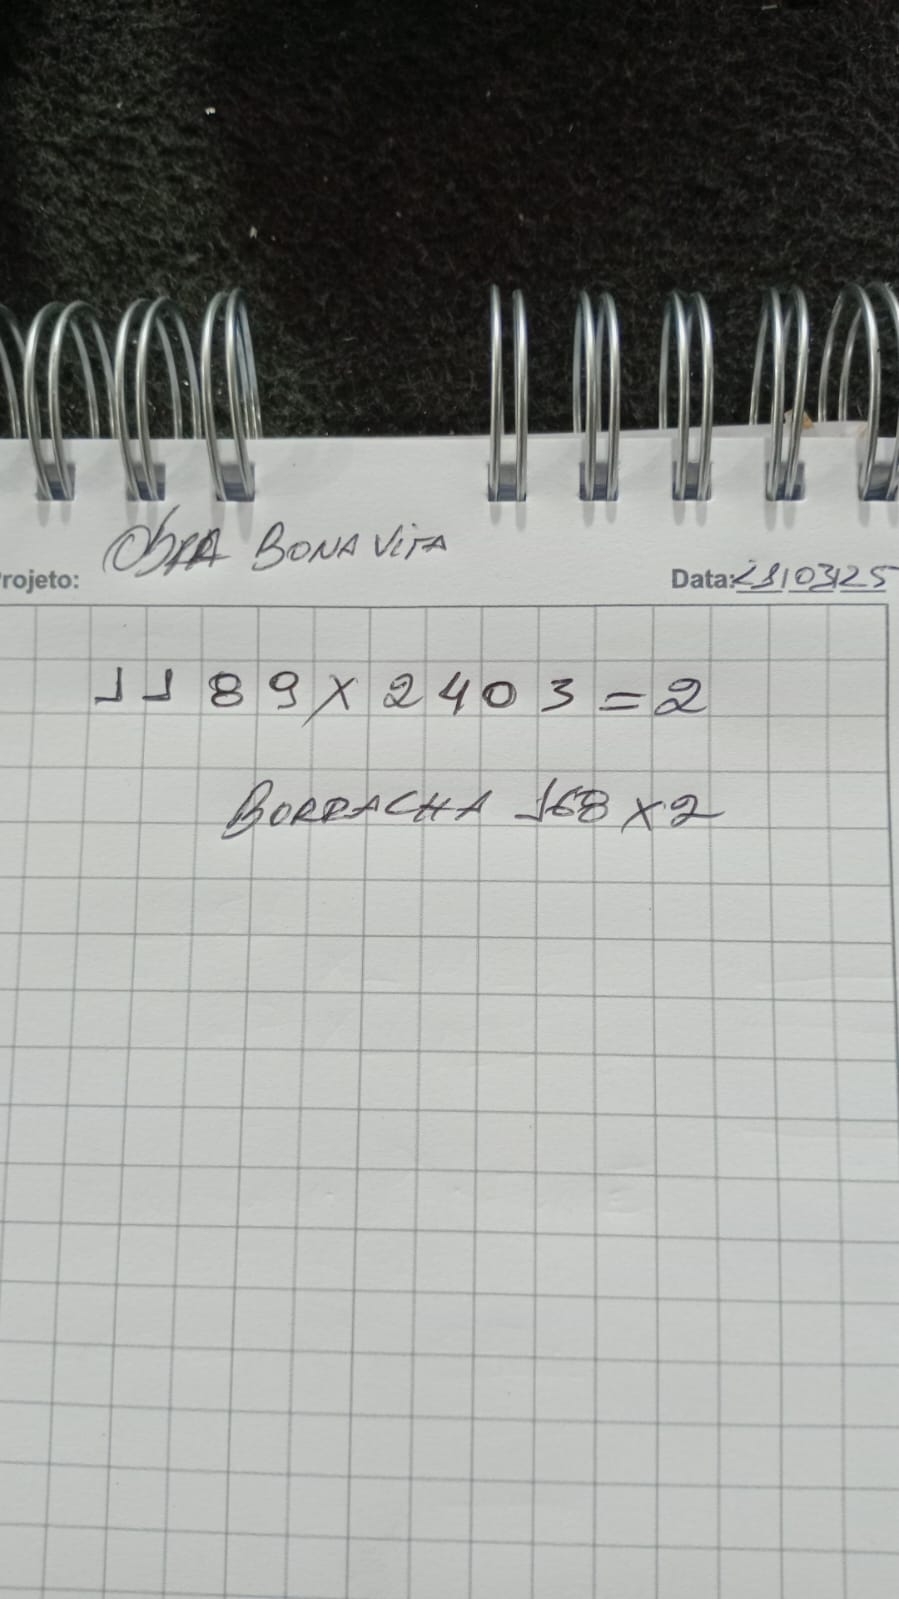 Obra BONA VITA
rojeto: Data: 28/03/25
1189 X 2403 = 2
BORRACHA 168 X 2